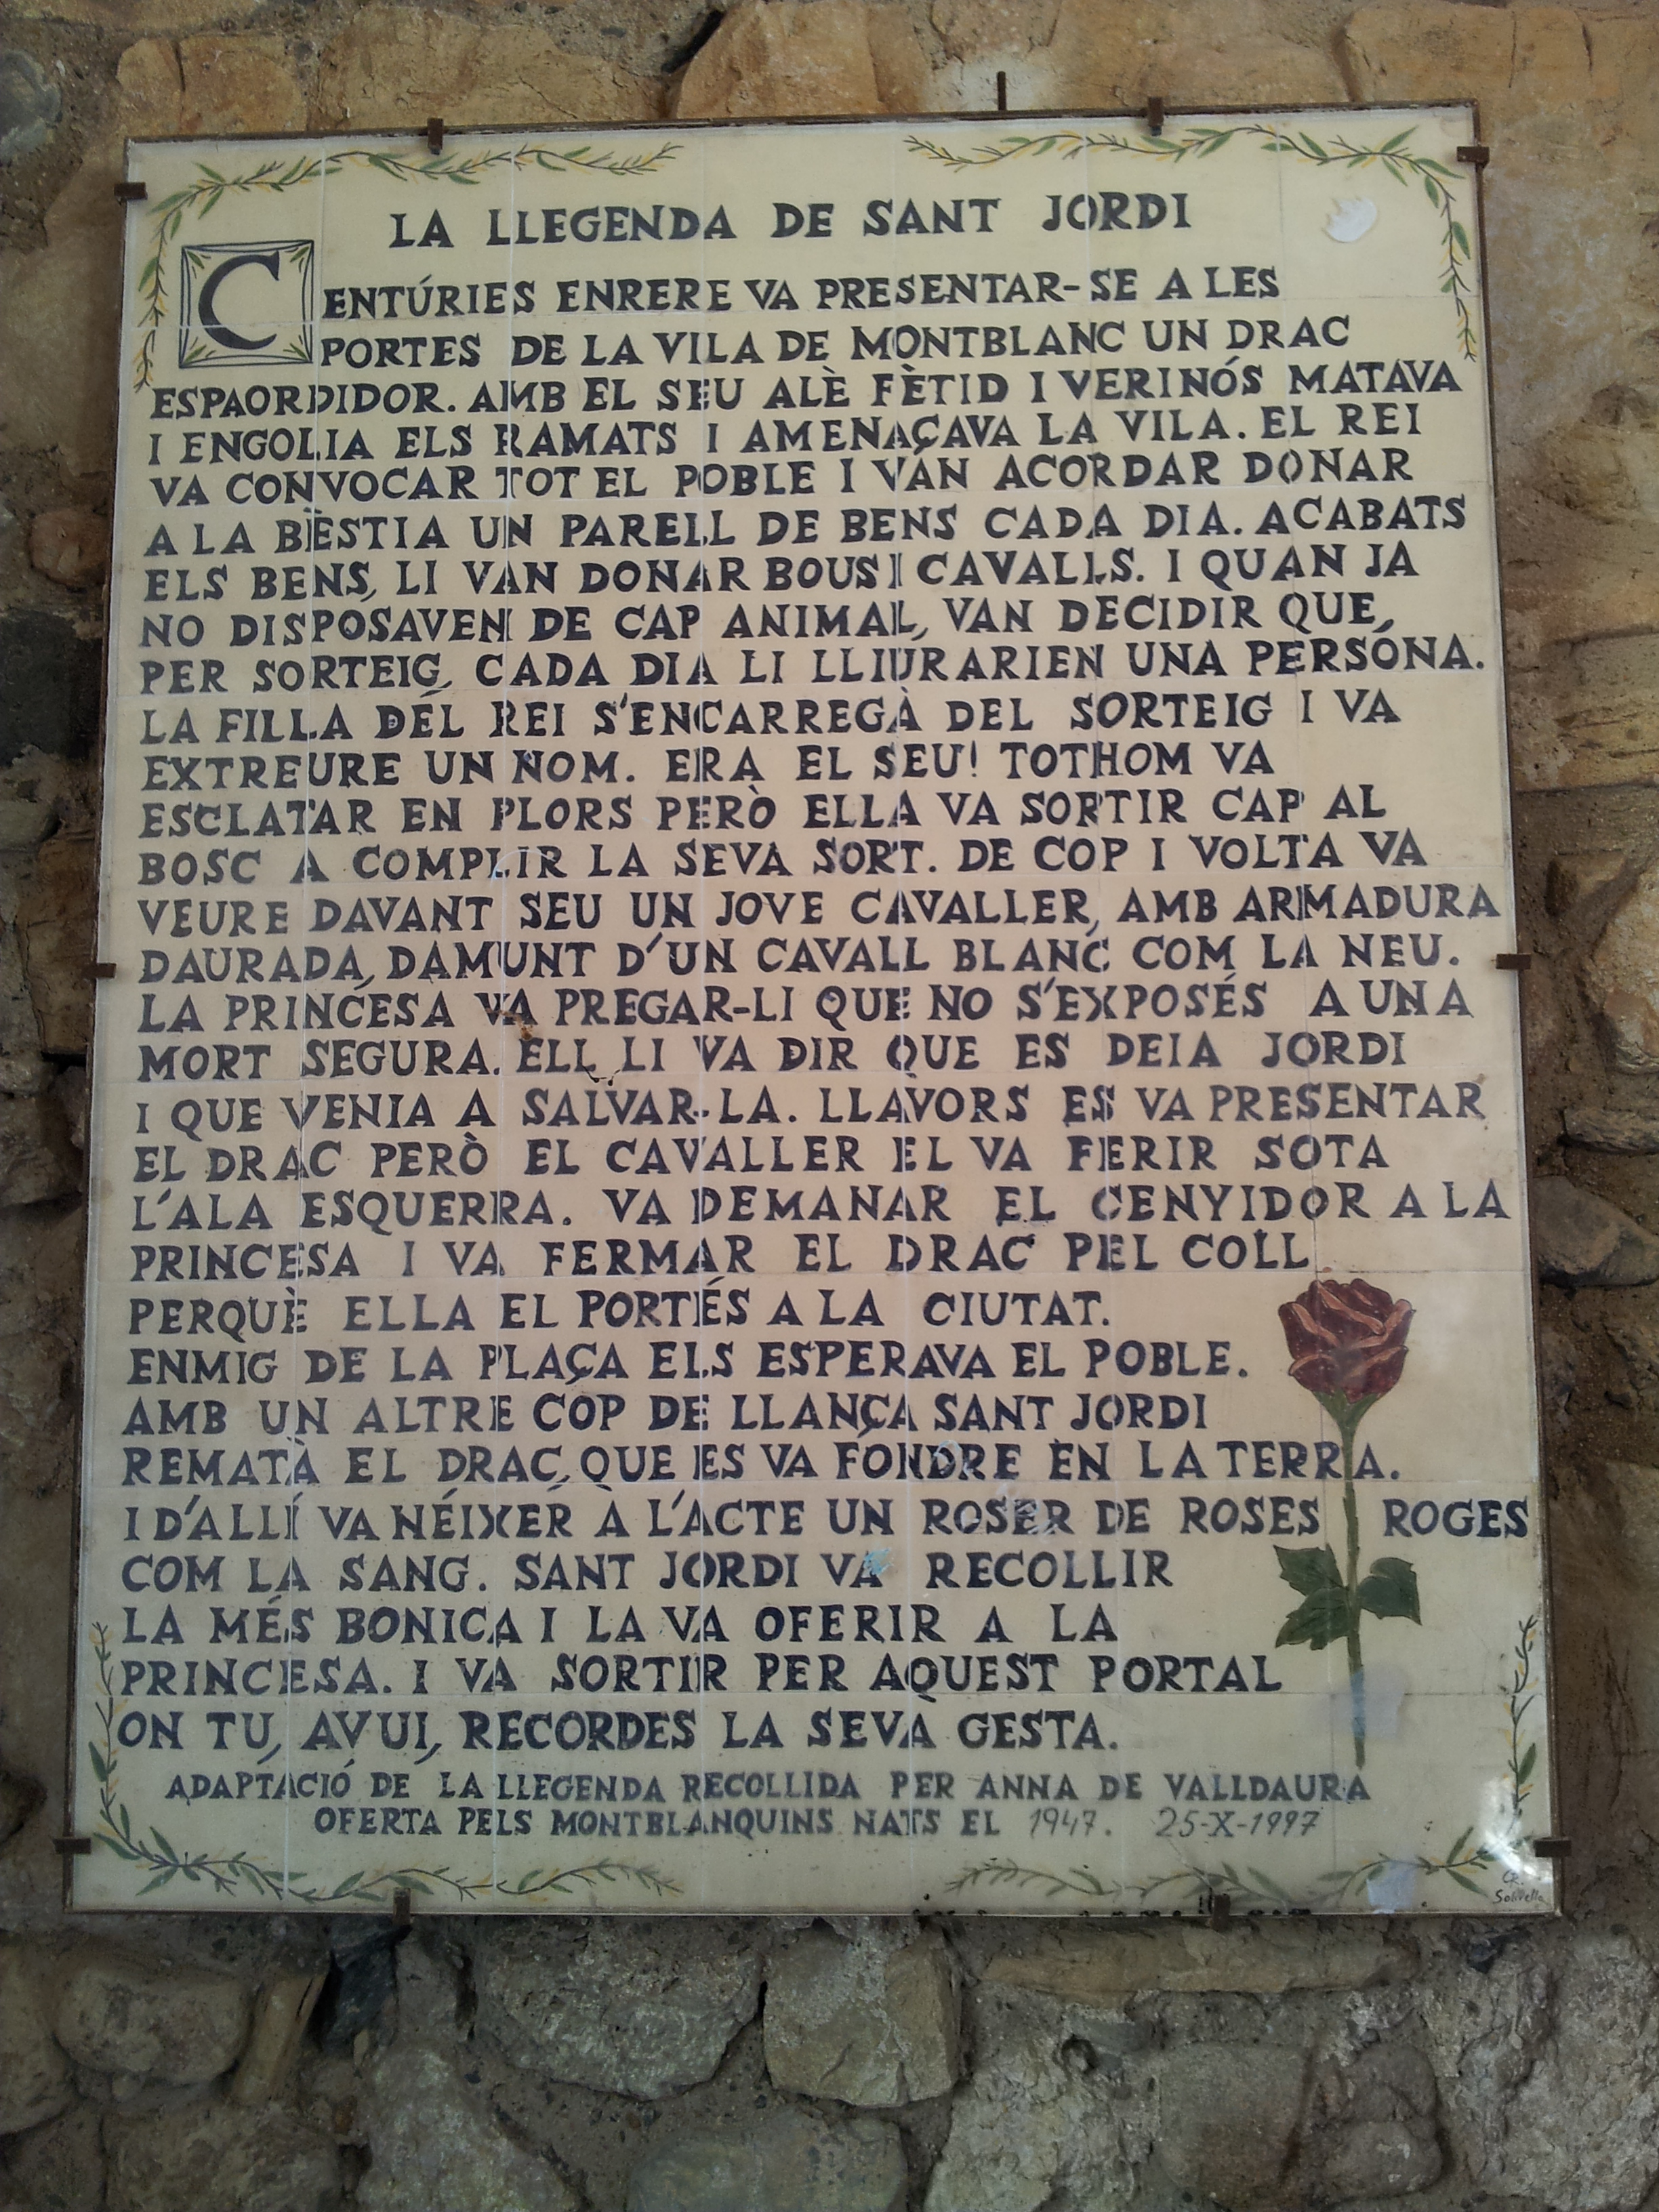 LA LLEGENDA DE SANT JORDI
CENTÚRIES ENRERE VA PRESENTAR-SE A LES
PORTES DE LA VILA DE MONTBLANC UN DRAC
ESPAORDIDOR. AMB EL SEU ALÈ FÈTID I VERINÓS MATAVA
I ENGOLIA ELS RAMATS I AMENAÇAVA LA VILA. EL REI
VA CONVOCAR TOT EL POBLE I VAN ACORDAR DONAR
A LA BÈSTIA UN PARELL DE BENS CADA DIA. ACABATS
ELS BENS, LI VAN DONAR BOUS I CAVALLS. I QUAN JA
NO DISPOSAVEN DE CAP ANIMAL, VAN DECIDIR QUE,
PER SORTEIG, CADA DIA LI LLIURARIEN UNA PERSONA.
LA FILLA DEL REI S'ENCARREGÀ DEL SORTEIG I VA
EXTREURE UN NOM. ERA EL SEU! TOTHOM VA
ESCLATAR EN PLORS PERÒ ELLA VA SORTIR CAP AL
BOSC A COMPLIR LA SEVA SORT. DE COP I VOLTA VA
VEURE DAVANT SEU UN JOVE CAVALLER, AMB ARMADURA
DAURADA, DAMUNT D'UN CAVALL BLANC COM LA NEU.
LA PRINCESA VA PREGAR-LI QUE NO S'EXPOSÉS A UNA
MORT SEGURA. ELL LI VA DIR QUE ES DEIA JORDI
I QUE VENIA A SALVAR-LA. LLAVORS ES VA PRESENTAR
EL DRAC PERÒ EL CAVALLER EL VA FERIR SOTA
L'ALA ESQUERRA. VA DEMANAR EL CENYIDOR A LA
PRINCESA I VA FERMAR EL DRAC PEL COLL
PERQUÈ ELLA EL PORTÉS A LA CIUTAT.
ENMIG DE LA PLAÇA ELS ESPERAVA EL POBLE.
AMB UN ALTRE COP DE LLANÇA SANT JORDI
REMATÀ EL DRAC, QUE ES VA FONDRE EN LA TERRA.
I D'ALLÍ VA NÉIXER A L'ACTE UN ROSER DE ROSES ROGES
COM LA SANG. SANT JORDI VA RECOLLIR
LA MÉS BONICA I LA VA OFERIR A LA
PRINCESA. I VA SORTIR PER AQUEST PORTAL
ON TU, AVUI, RECORDES LA SEVA GESTA.
ADAPTACIÓ DE LA LLEGENDA RECOLLIDA PER ANNA DE VALLDAURA
OFERTA PELS MONTBLANQUINS NATS EL 1947. 25-X-1997
CR.
Solivella